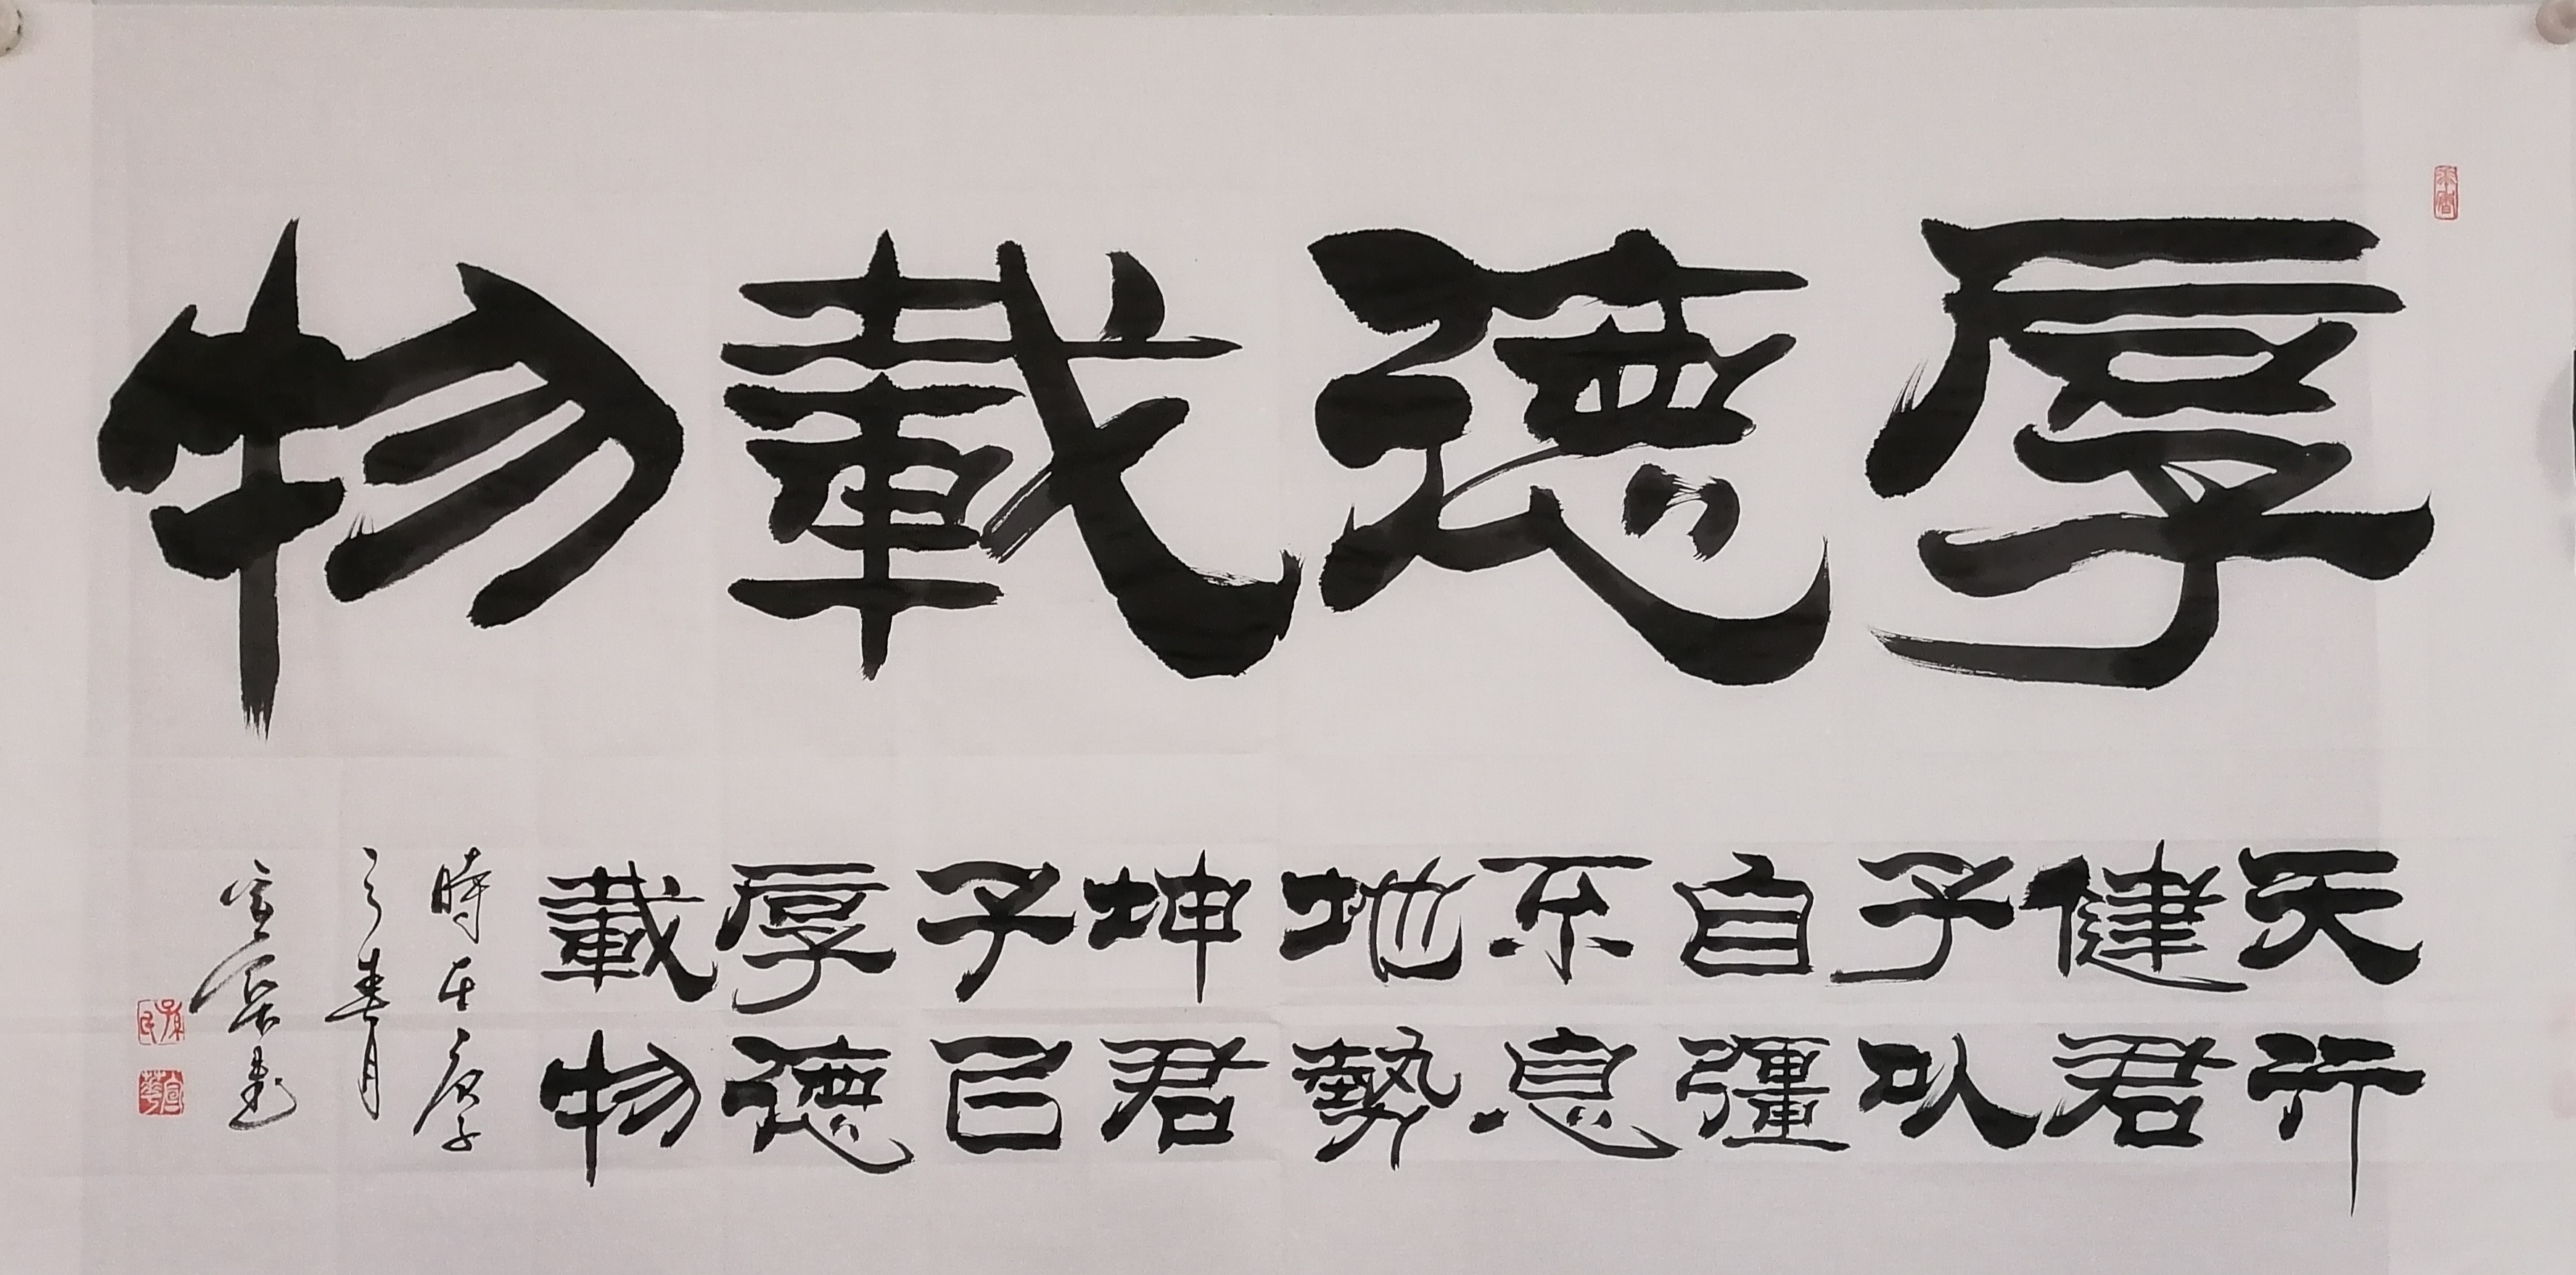 厚德載物
天行
健君
子以
自彊
不息
地勢
坤君
子以
厚德
載物
時在庚子
之春月